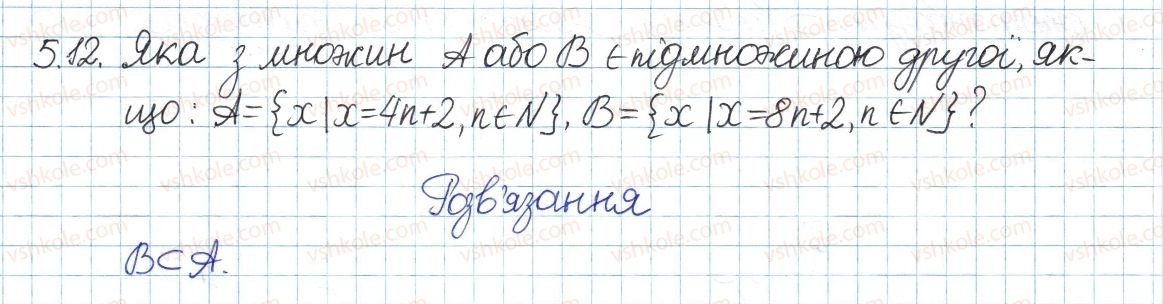 5.12. Яка з множин A або B є підмножиною другої, як-
що: A={x|x=4n+2, n∈N}, B={x|x=8n+2, n∈N}?
Розв'язання
B⊂A.